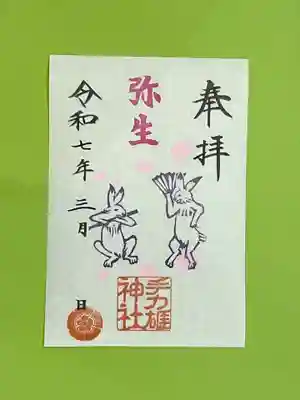 奉拝
弥生
手力雄
神社
令和七年三月 日